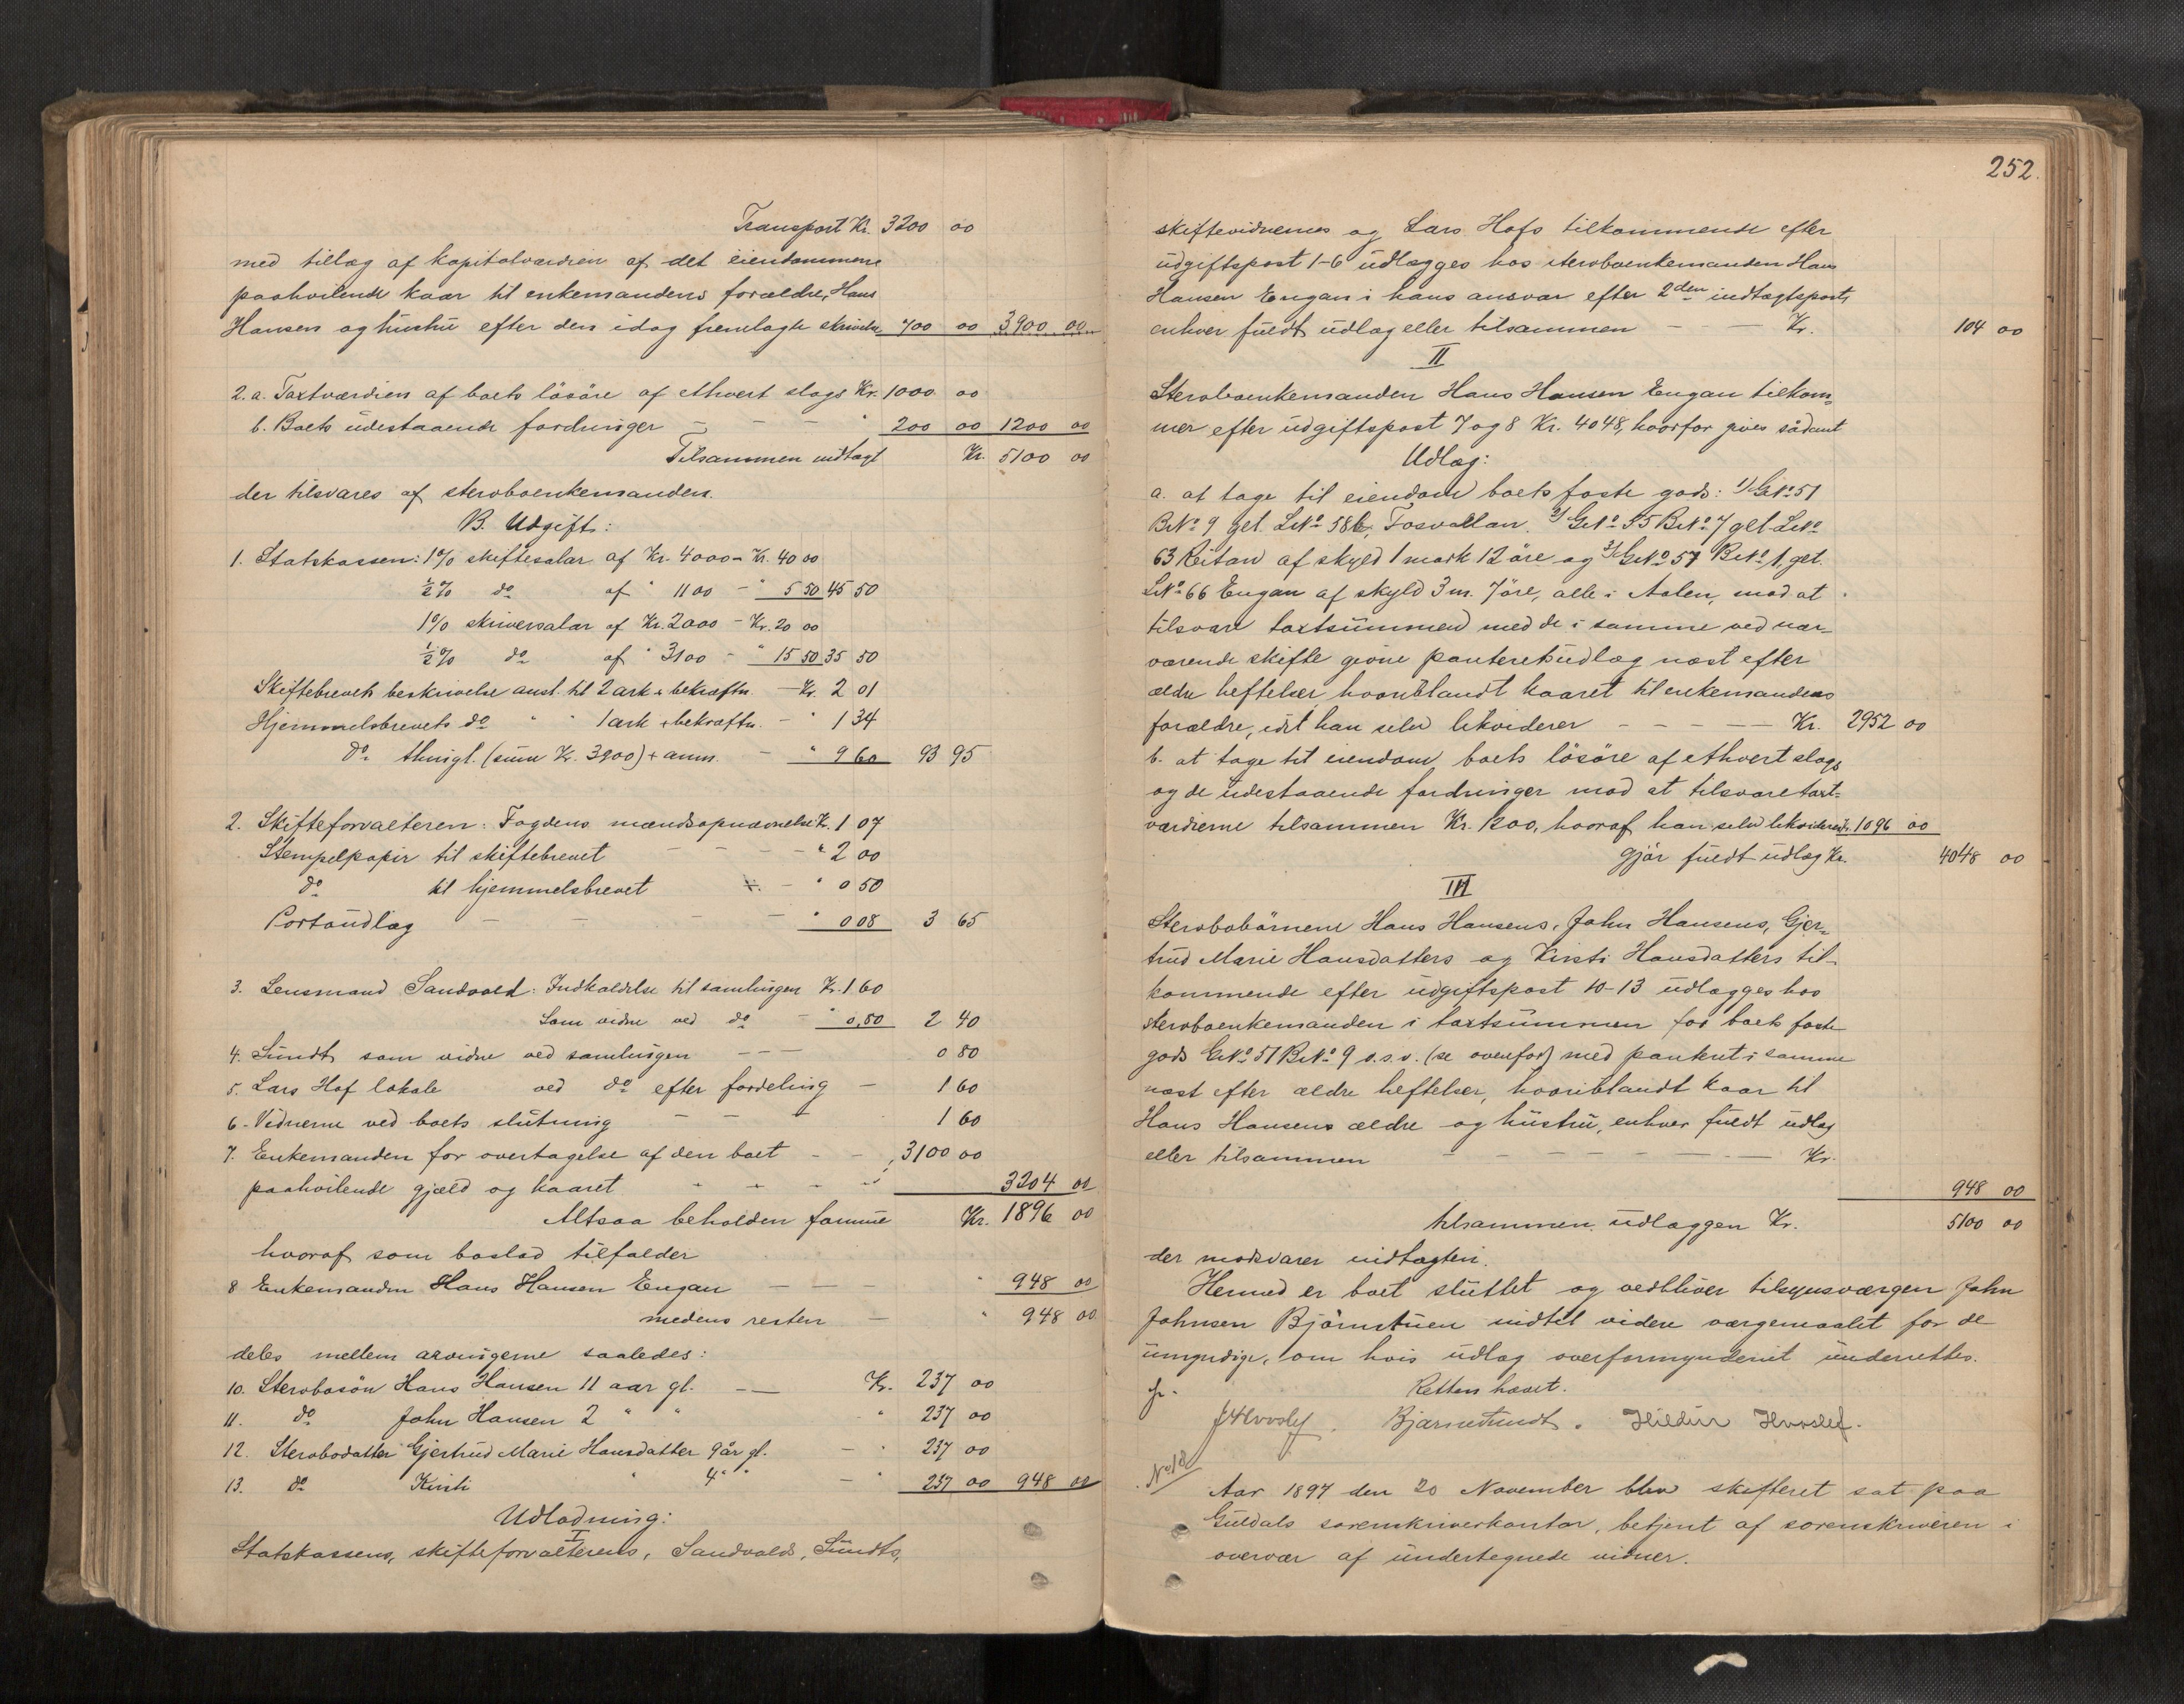 Transport Kr. 3200 00
med tillæg af kapitalværdien af det eiendommene
paahvilende kaar til enkemandens forældre, Hans
Hansen og hustru efter den idag fremlagte skrivelse 700 00 3900 00
2. a. Taxtværdien af boets lösöre af ethvert slags Kr. 1000 00
b. Boets udestaaende fordringer — — — " 200 00 1200 00
Tilsammen indtægt Kr. 5100 00
der tilsvares af sterboenkemanden.
B. Udgift:
1. Statskassen: 1% skiftesalær af Kr. 4000 - Kr. 40 00
½% do af " 1100 - " 5 50 45 50
1% skriversalær af Kr. 2000 - Kr. 20 00
½% do af " 3100 - " 15 50 35 50
Skiftebrevets beskrivelse ansl. til 2 ark + bekræftn. — Kr. 2 01
Hjemmelsbrevets do " " 1 ark + bekræftn. - " 1 34
do thinگl. (sum Kr. 3900) + anm. — " 9 60 93 95
2. Skifteforvalteren: Fogdens mændsopnævnelse Kr. 1 07
Stempelpapir til skiftebrevet — — — " 2 00
do til hjemmelsbrevet — " 0 50
Portoudlæg — — — — " 0 08 3 65
3. Lensmand Sandvold: Indkaldelse til samlingen Kr. 1 60
Som vidne ved do — " 0,80 2 40
4. Sundt som vidne ved samlingen — — — 0 80
5. Lars Hof lokale ved do efter fordeling — 1 60
6. Vidnerne ved boets slutning — — — 1 60
7. Enkemanden for overtagelse af den boet — — 3100 00
paahvilende gjæld og kaaret - - - - 3204 00
Altsaa beholden formue Kr. 1896 00
hvoraf som boslod tilfalder
8 Enkemanden Hans Hansen Engan — — — " 948 00
medens resten — " 948 00
deles mellem arvingerne saaledes:
10. Sterbosön Hans Hansen 11 aar gl. — — Kr. 237 00
11. do John Hansen 2 " " " 237 00
12. Sterbodatter Gjertrud Marie Hansdatter 9 år gl. — " 237 00
13. do Kirsti " 4 " " — " 237 00 948 00
Udlodning:
I
Statskassens, skifteforvalterens, Sandvolds, Sundts,
252.
skiftevidnernes og Lars Hofs tilkommende efter
udgiftspost 1-6 udlægges hos sterboenkemanden Hans
Hansen Engan i hans ansvar efter 2den indtægtspost,
enhver fuldt udlæg eller tilsammen — — Kr. 104 00
II
Sterboenkemanden Hans Hansen Engan tilkom-
mer efter udgiftspost 7 og 8 Kr. 4048, hvorfor gives sådant
Udlæg:
a. at tage til eiendom boets faste gods: 1/ GNo 51
BNo 9 gel. LNo 58b, Fosvollan 2/ GNo 55 BNo 7 gel. LNo
63 Reitan af skyld 1 mark 12 öre og 3/ GNo 57 BNo 1, gel.
LNo 66 Engan af skyld 3 m. 7 öre, alle i Aalen, mod at
tilsvare taxtsummen med de i samme ved nær-
værende skifte givne panteretsudlæg næst efter
ældre heftelser, hvoriblandt kaaret til enkemandens
forældre, idet han selv likviderer — — — — — Kr. 2952 00
b. at tage til eiendom boets lösöre af ethvert slags
og de udestaaende fordringer mod at tilsvare taxt-
værdierne tilsammen Kr. 1200, hvoraf han selv likviderer " 1096 00
gjör fuldt udlæg Kr. 4048 00
III
Sterbobörnene Hans Hansens, John Hansens, Gjer-
trud Marie Hansdatters og Kirsti Hansdatters til-
kommende efter udgiftspost 10-13 udlægges hos
sterboenkemanden i taxtsummen for boets faste
gods GNo 51 BNo 9 o.s.v. (se ovenfor) med panteret i samme
næst efter ældre heftelser, hvoriblandt kaar til
Hans Hansens ældre og hustru, enhver fuldt udlæg
eller tilsammen — — — — — — Kr.
948 00
tilsammen udlæggen Kr. 5100 00
der modsvarer indtægten.
Hermed er boet sluttet og vedbliver tilsynsværgen John
Johnsen Björnstuen indtil videre værgemaalet for de
umyndige, om hvis udlæg overformynderiet underrettes.
Retten hævet.
JHvoslef. Bjarne Sundt. Hildur Hvoslef.
No 12
Aar 1897 den 20 November blev skifteret sat paa
Guldals sorenskriverkontor, betjent af sorenskriveren i
overvær af undertegnede vidner.